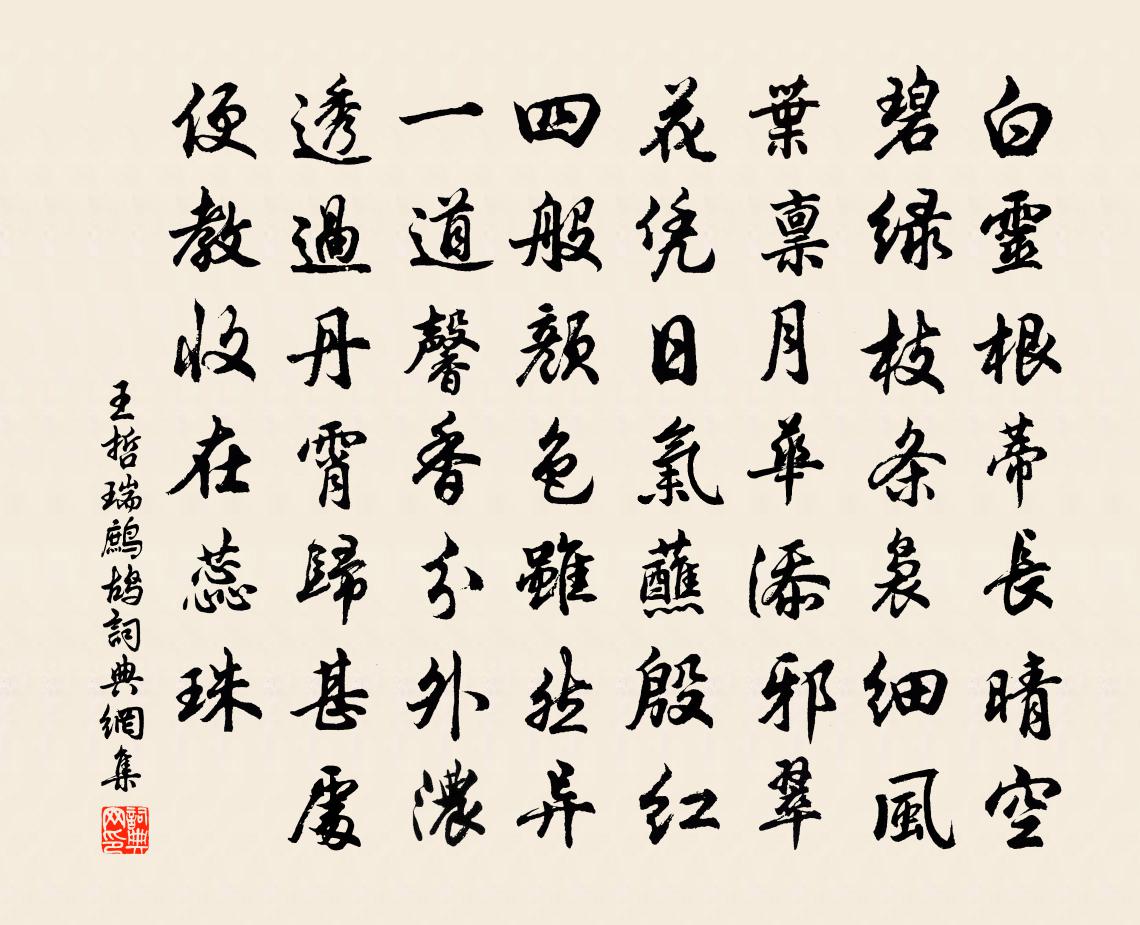 白靈根蒂長晴空
碧緑枝条裊細風
葉禀月華添邪翠
花凭日氣蘸殷紅
四般顔色雖然异
一道馨香分外濃
透過丹霄歸甚處
便教收在蕊珠
王哲瑞鷓鴣詞典網集
詞典网印